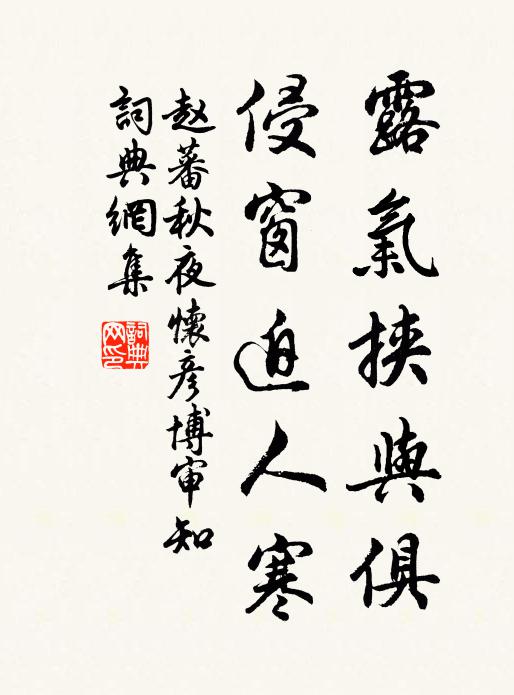 露氣挾與俱
侵窗迫人寒
赵蕃秋夜懷彥博审知
詞典網集
詞典网印